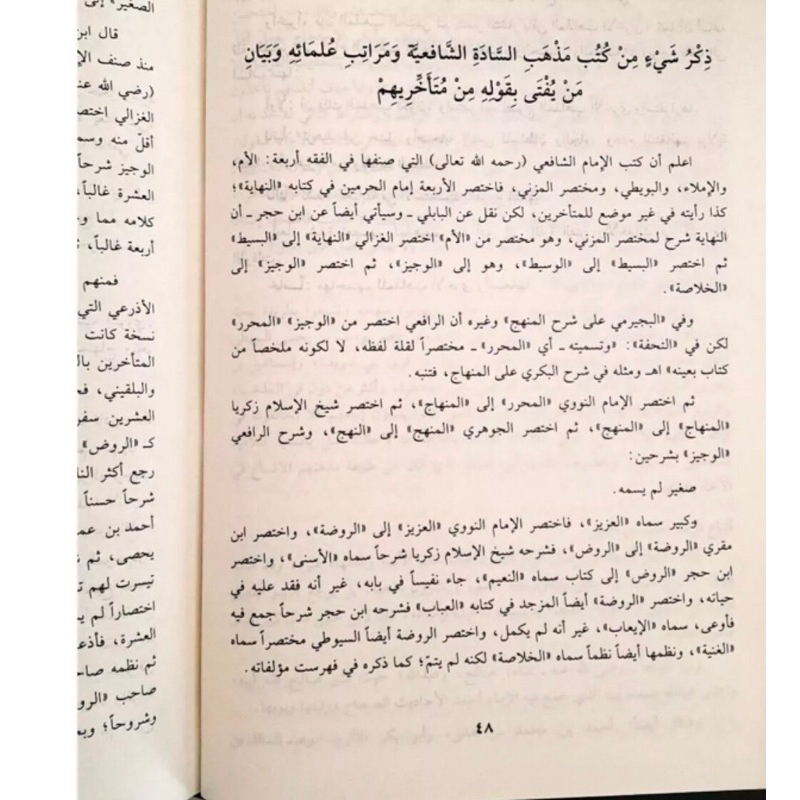 ذِكْرُ شَيْءٍ مِنْ كُتُب مَذْهَبِ السَّادَةِ الشَّافعِيَّة وَمَرَاتِبِ عُلمَائِهِ وَبَيَانِ
مَنْ يُفْتَى بِقَوْلِهِ مِنْ مُتَأَخِّرِيهِمْ
اعلم أن كتب الإمام الشافعي (رحمه الله تعالى) التي صنفها في الفقه أربعة: الأم،
والإملاء، والبويطي، ومختصر المزني، فاختصر الأربعة إمام الحرمين في كتابه «النهاية»؛
كذا رأيته في غير موضع للمتأخرين، لكن نقل عن البابلي ـ وسيأتي أيضاً عن ابن حجر ـ أن
النهاية شرح لمختصر المزني، وهو مختصر من «الأم» اختصر الغزالي «النهاية» إلى «البسيط»
ثم اختصر «البسيط» إلى «الوسيط»، وهو إلى «الوجيز»، ثم اختصر «الوجيز» إلى
«الخلاصة».
وفي «البجيرمي على شرح المنهج» وغيره أن الرافعي اختصر من «الوجيز» «المحرر»
لكن في «التحفة»: «وتسميته ـ أي «المحرر» ـ مختصراً لقلة لفظه، لا لكونه ملخصاً من
كتاب بعينه» اهـ ومثله في شرح البكري على المنهاج، فتنبه.
ثم اختصر الإمام النووي «المحرر» إلى «المنهاج»، ثم اختصر شيخ الإسلام زكريا
«المنهاج» إلى «المنهج»، ثم اختصر الجوهري «المنهج» إلى «النهج»، وشرح الرافعي
«الوجيز» بشرحين:
صغير لم يسمه.
وكبير سماه «العزيز»، فاختصر الإمام النووي «العزيز» إلى «الروضة»، واختصر ابن
مقري «الروضة» إلى «الروض»، فشرحه شيخ الإسلام زكريا شرحاً سماه «الأسنى»، واختصر
ابن حجر «الروض» إلى كتاب سماه «النعيم»، جاء نفيساً في بابه، غير أنه فقد عليه في
حياته، واختصر «الروضة» أيضاً المزجد في كتابه «العباب» فشرحه ابن حجر شرحاً جمع فيه
فأوعى، سماه «الإيعاب»، غير أنه لم يكمل، واختصر الروضة أيضاً السيوطي مختصراً سماه
«الغنية»، ونظمها أيضاً نظماً سماه «الخلاصة» لكنه لم يتمّ؛ كما ذكره في فهرست مؤلفاته.
٤٨
الصغير» إلى
قال ابن
منذ صنف الإ
(رضي الله عنه
الغزالي اختصر
أقلّ منه وسم
الوجيز شرحاً
العشرة غالباً،
كلامه مما و
أربعة غالباً،
فمنهم
الأذرعي التي
نسخة كانت
المتأخرين بال
والبلقيني،
العشرين سفر
كـ «الروض»
رجع أكثر النا
شرحاً حسناً
أحمد بن عم
يحصى، ثم
تيسرت لهم
اختصاراً لم
العشرة، فأذع
ثم نظمه صاحب
صاحب «الرو
وشروحاً؛ وبم